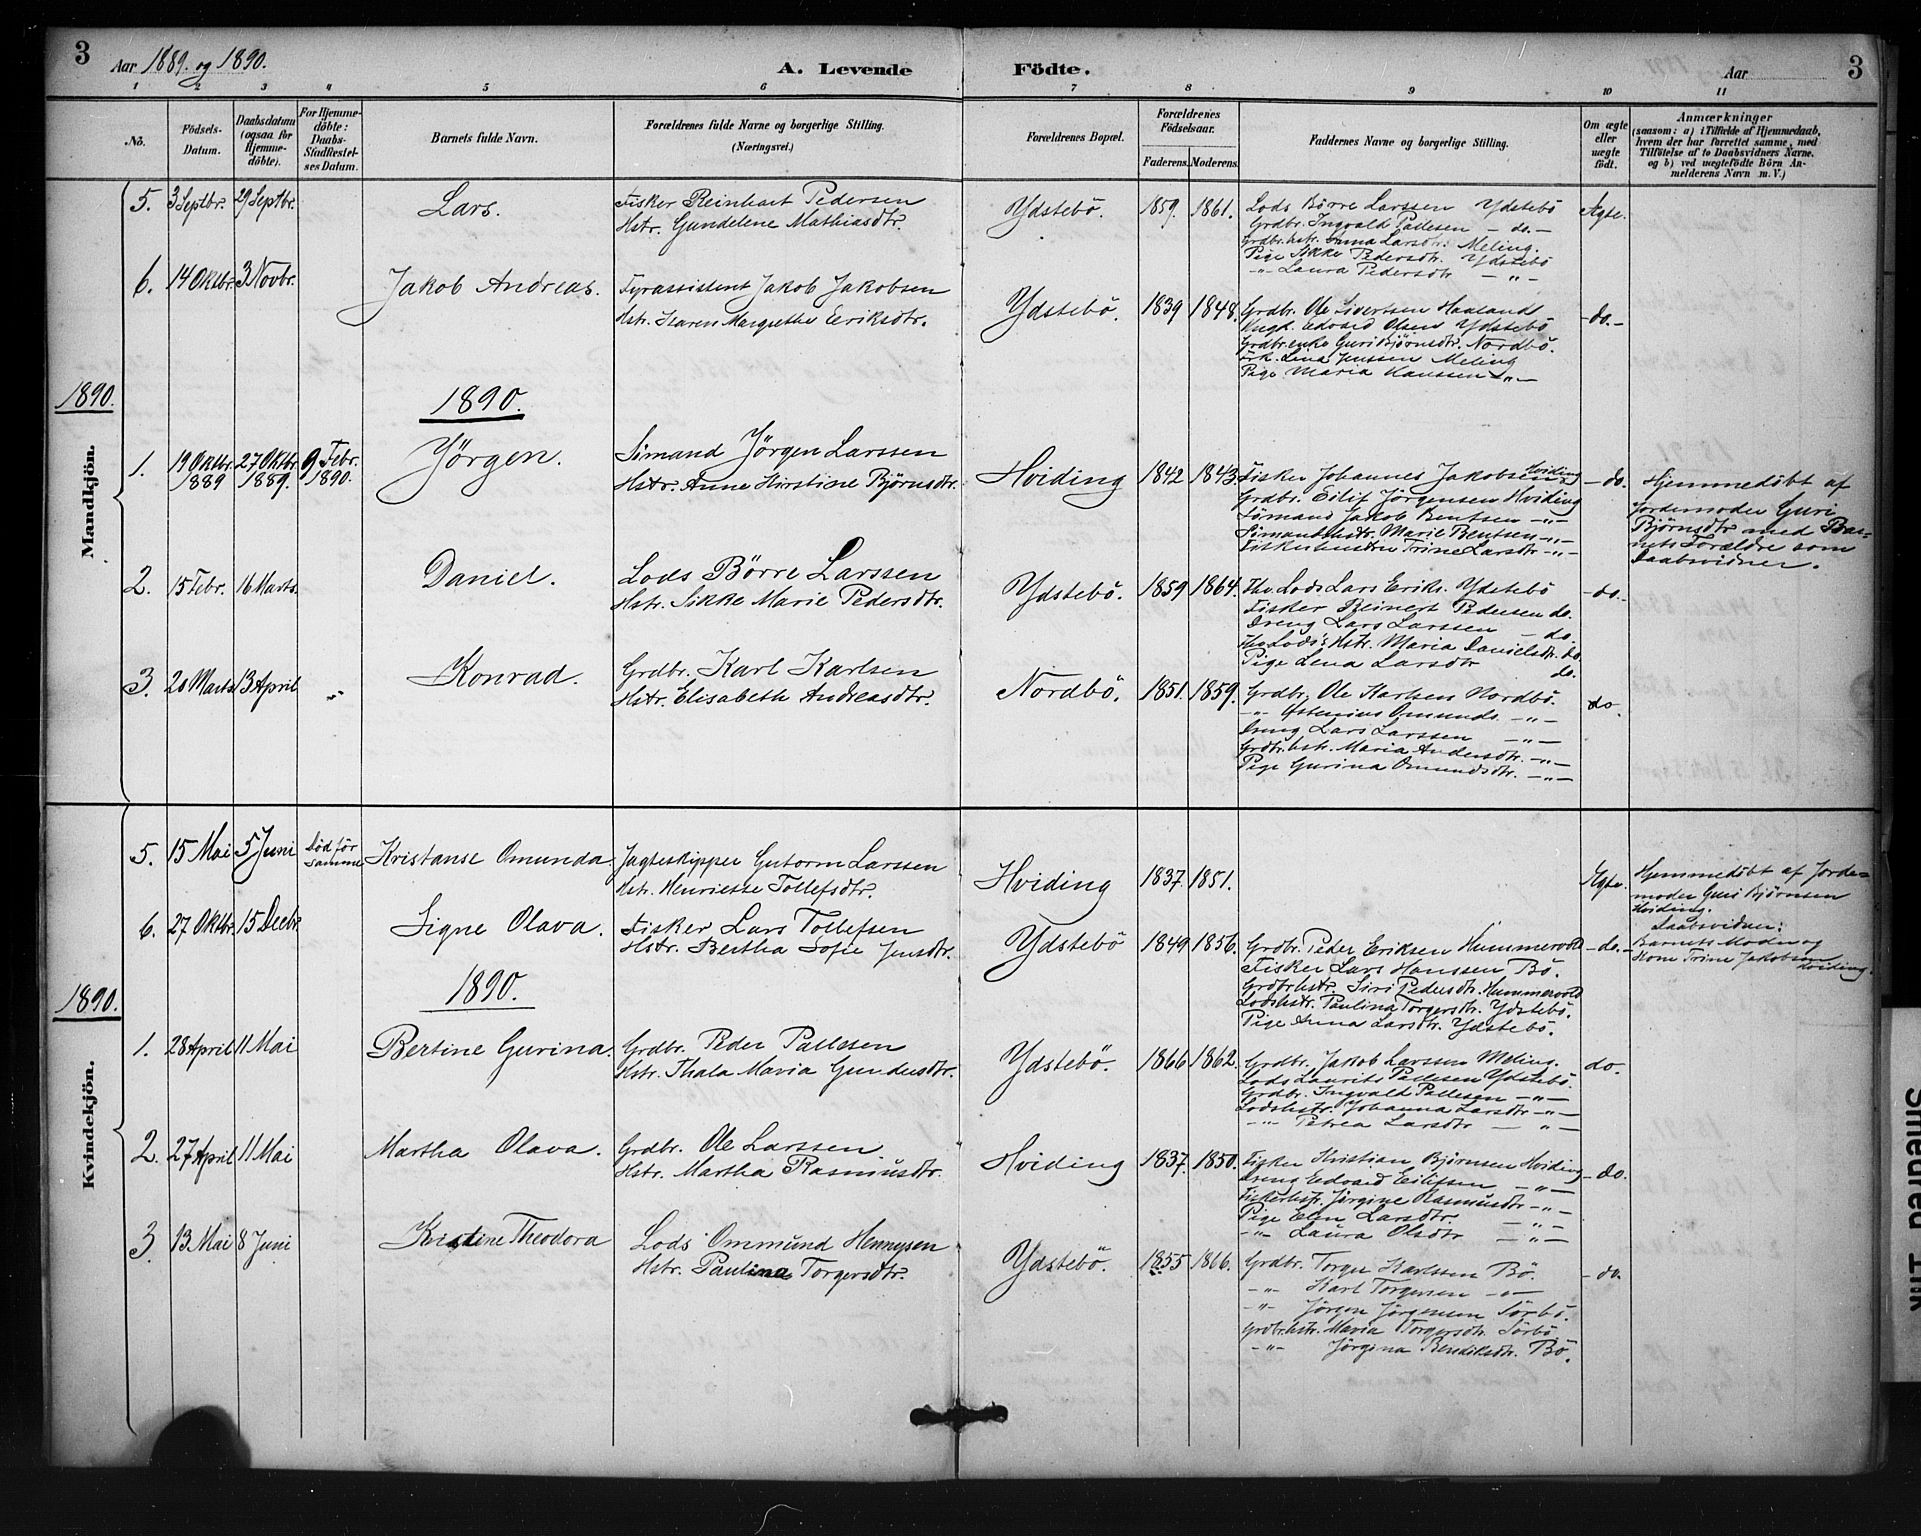 3 Aar 1889. og 1890. A. Levende Födte. Aar 3
1 2 3 4 5 6 7 8 9 10 11
No. Födsels-Datum. Daabsdatum (ogsaa for Hjemmedöbte). For Hjemmedöbte: Daabs-Stadfæstelses Datum. Barnets fulde Navn. Forældrenes fulde Navne og borgerlige Stilling. (Næringsvei.) Forældrenes Bopæl. Forældrenes Födselsaar. Faderens. Moderens. Faddernes Navne og borgerlige Stilling. Om ægte eller uægte födt. Anmærkninger (saasom: a) i Tilfælde af Hjemmedaab, hvem der har forrettet samme, med Tilföielse af to Daabsvidners Navne, og b) ved uægtefödte Börn Anmelderens Navn m. V.)
5. 3 Septbr. 29 Septbr. Lars. Fisker Reinhart Pedersen
Hstr. Gundelene Mathiasdtr. Ydstebö. 1859. 1861. Lods Börre Larssen Ydstebö Ægte.
Grdbr. Ingvald Pallesen - do. -
Grdbr. hstr. Anna Larsdtr. Meling.
Pige Sikke Pedersdtr. Ydstebö
-"- Laura Pedersdtr -"-
6. 14 Oktbr. 3 Novbr. Jakob Andreas. Fyrassistent Jakob Jakobsen
Hstr. Karen Margrethe Eriksdtr. Ydstebö. 1839 1848. Grdbr. Ole Sivertsen Haaland - do. -
Ungk. Edvard Olsen Ydstebö
Grdbr. enke Guri Björnsdtr. Nordbö.
Lina Jenssen Meling
Pige Maria Hanssen -"-
1890. 1890.
Mandkjön.
1. 19 Oktbr. 1889 27 Oktbr. 1889. 9 Febr. 1890. Jörgen. Sömand Jörgen Larssen
Hstr. Anne Kirstine Björnsdtr. Hviding 1842 1843. Fisker Johannes Jakobsen Hviding - do. Hjemmedöbt af
Grdbr. Eilif Jörgensen Hviding Jordemoder Guri
Sömand Jakob Bentsen -"- Björnsdtr med Bar-
Sömandshstr. Marie Bentsen -"- nets Forældre som
Fiskerhustru Trine Larsdtr -"- Daabsvidner.
2. 15 Febr. 16 Marts. Daniel. Lods Börre Larssen
Hstr. Sikke Marie Pedersdtr. Ydstebö. 1859 1864. Lods Lars Eriks. Ydstebö - do. -
Fisker Reinert Pedersen do.
Dreng Lars Larssen - do.
Lods's Hstr. Maria Danielsdtr. do.
Pige Lena Larsdtr do.
3. 20 Marts 13 April -"- Konrad. Grdbr. Karl Karlsen
Hstr. Elisabeth Andreasdtr. Nordbö. 1851. 1859. Grdbr. Ole Karlsen Nordbö. do.
-"- Omunds. -"-
Dreng Lars Larssen -"-
Grdbr. hstr. Maria Andersdtr. -"-
Pige Gurina Omundsdtr. -"-
5. 15 Mai 5 Juni Död för samme Kristanse Omunda Jagteskipper Gutorm Larssen
Hstr. Henriette Tollefsdtr. Hviding 1837. 1851. Ægte. Hjemmedöbt af Jorde-
moder Guri Bjørnsen
Hviding.
Daabsvidner:
Barnets Moder og
Kone Trine Jakobsen
Hviding.
6. 27 Oktbr. 15 Decbr. Signe Olava. Fisker Lars Tollefsen
Hstr. Bertha Sofie Jensdtr. Ydstebö 1849 1856. Grdbr. Peder Eriksen Hummervold - do. -
Fisker Lars Hanssen Bö.
Grdbrhstr. Siri Pedersdtr. Hummervold
Lodshstr. Paulina Torgersdtr. Ydstebö.
Pige Anna Larsdtr. Ydstebö.
1890. 1890.
Kvindekjön.
1. 28 April 11 Mai Bertine Gurina. Grdbr. Peder Pallesen
Hstr. Thala Maria Gundersdtr. Ydstebö. 1866 1862. Grdbr. Jakob Larssen Meling. do.
Lods Laurits Pallesen Ydstebö.
Grdbr. Ingvald Pallesen -"-
Lodshstr. Johanna Larsdtr -"-
-"- Petrea Larsdtr -"-
2. 27 April 11 Mai Martha Olava. Grdbr. Ole Larssen
Hstr. Martha Rasmusdtr. Hviding 1837. 1850. Fisker Kristian Björnsen Hviding - do.
Dreng Edvard Eilifsen -"-
Fiskerhstr. Jörgine Rasmusdtr -"-
Pige Elen Larsdtr. -"-
-"- Laura Olsdtr -"-
3. 13 Mai 8 Juni Kristine Theodora Lods Ommund Hennysen
Hstr. Paulina Torgersdtr. Ydstebö. 1855 1866. Grdbr. Torger Karlssen Bö. - do.
-"- Karl Torgersen -"-
-"- Jörgen Jörgensen Sörbö.
Grdbr. hstr. Maria Torgersdtr. Sörbö.
-"- Jörgina Bendiksdtr. Bö.